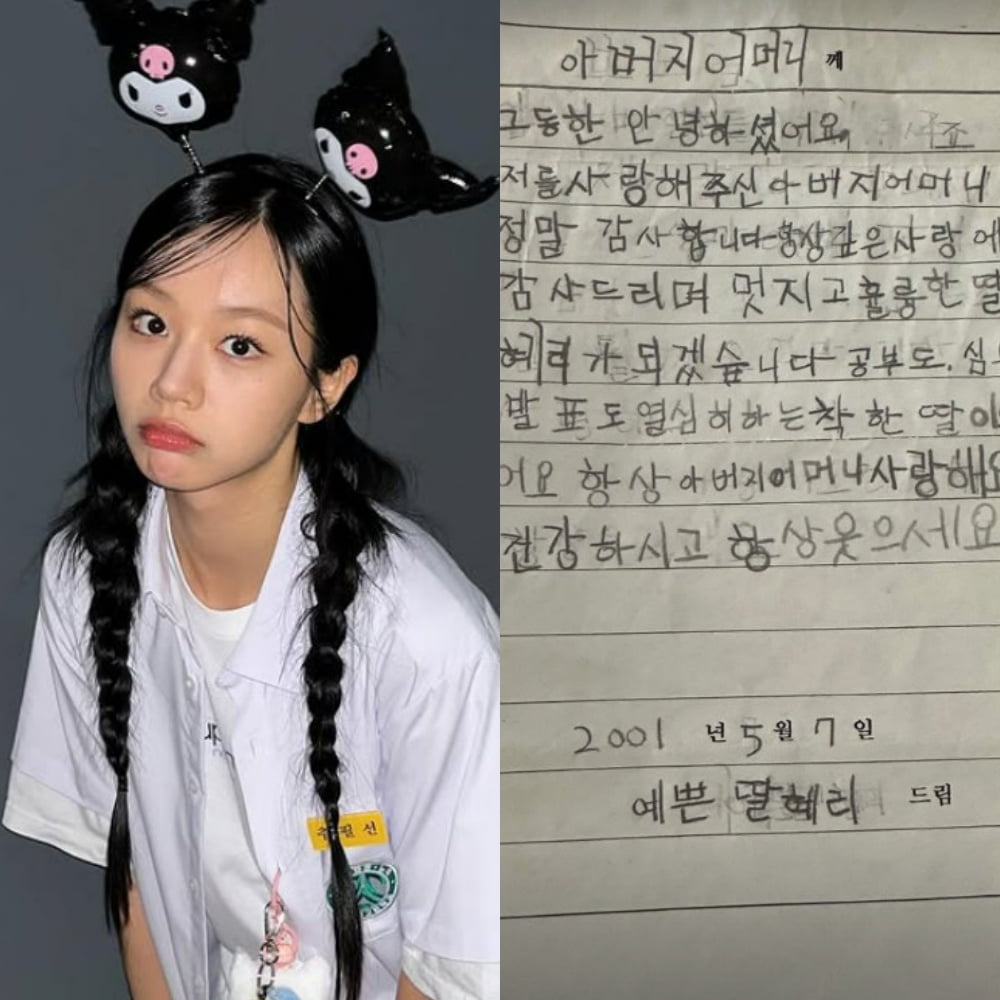 아버지어머니께
그동한 안녕하셨어요
저를사랑해주신아버지어머니
정말 감사합니다항상깊은사랑에
감사드리며 멋지고훌륭한딸
혜리가되겠습니다 공부도.심
발표도열심히하는착한딸이
어요 항상아버지어머니사랑해요
건강하시고 항상웃으세요
2001년5월7일
예쁜딸혜리 드림
필선